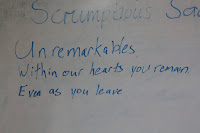 Scrumptious Sa
Unremarkables
Within our hearts you remain
Even as you leave